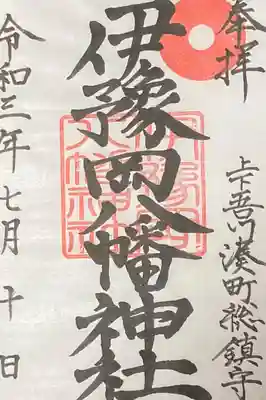 奉拝
上下吾川湊町総鎮守
伊豫岡八幡神社
伊豫岡八幡神社
令和三年七月十日